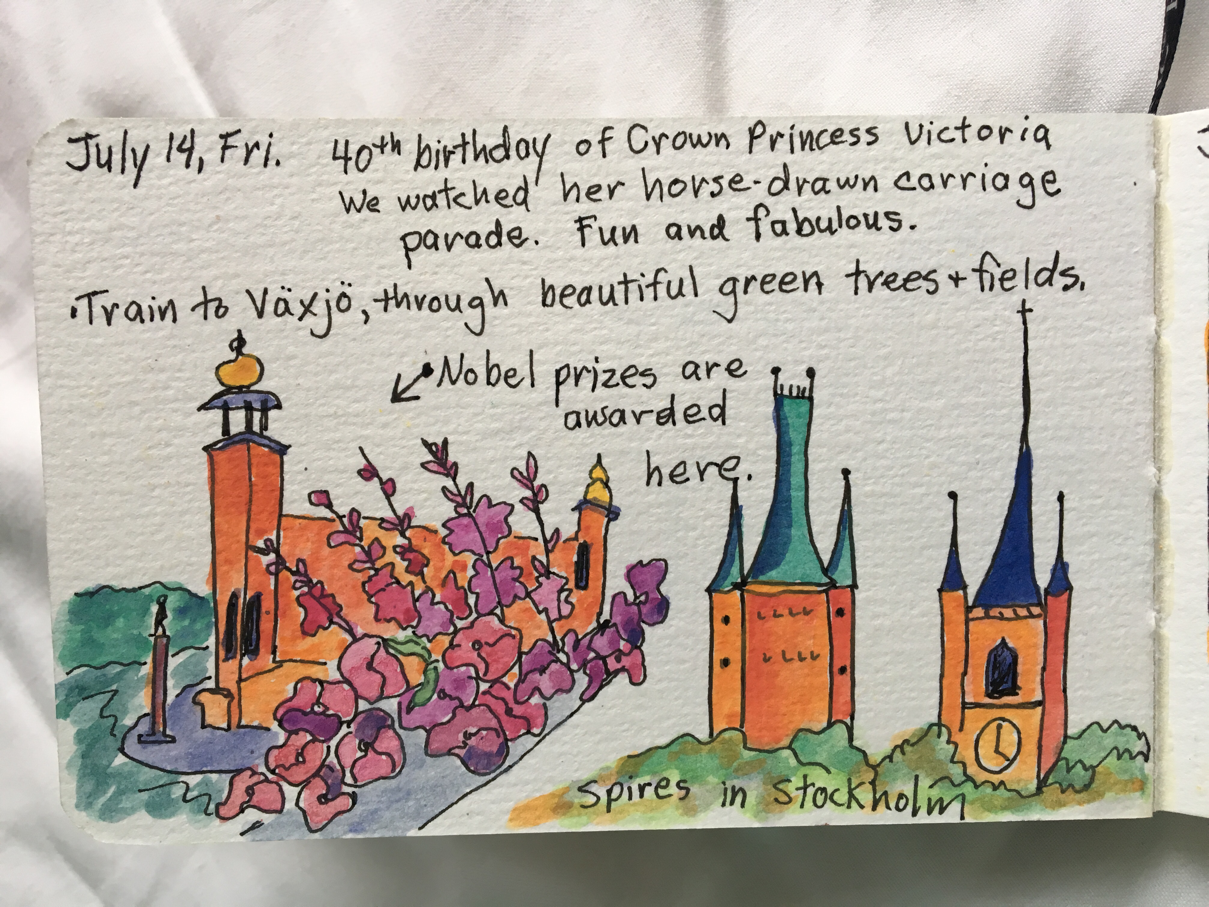 July 14, Fri. 40th birthday of Crown Princess Victoria
We watched her horse-drawn carriage
parade. Fun and fabulous.
•Train to Växjö, through beautiful green trees + fields.
•Nobel prizes are
awarded
here.
Spires in Stockholm